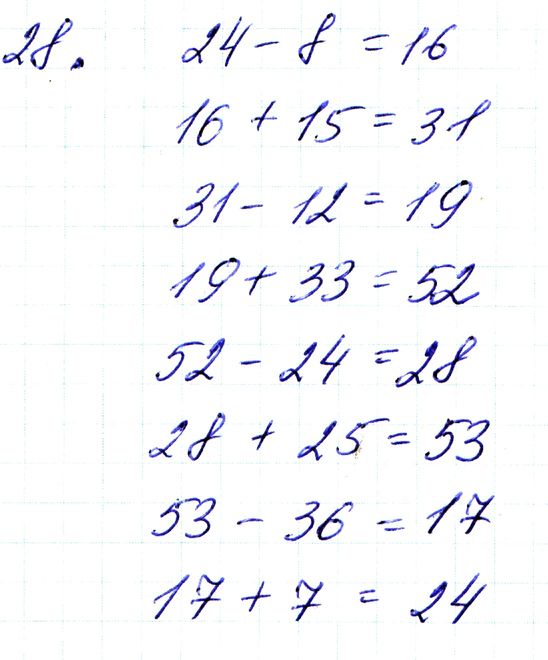 28. 24 - 8 = 16
16 + 15 = 31
31 - 12 = 19
19 + 33 = 52
52 - 24 = 28
28 + 25 = 53
53 - 36 = 17
17 + 7 = 24